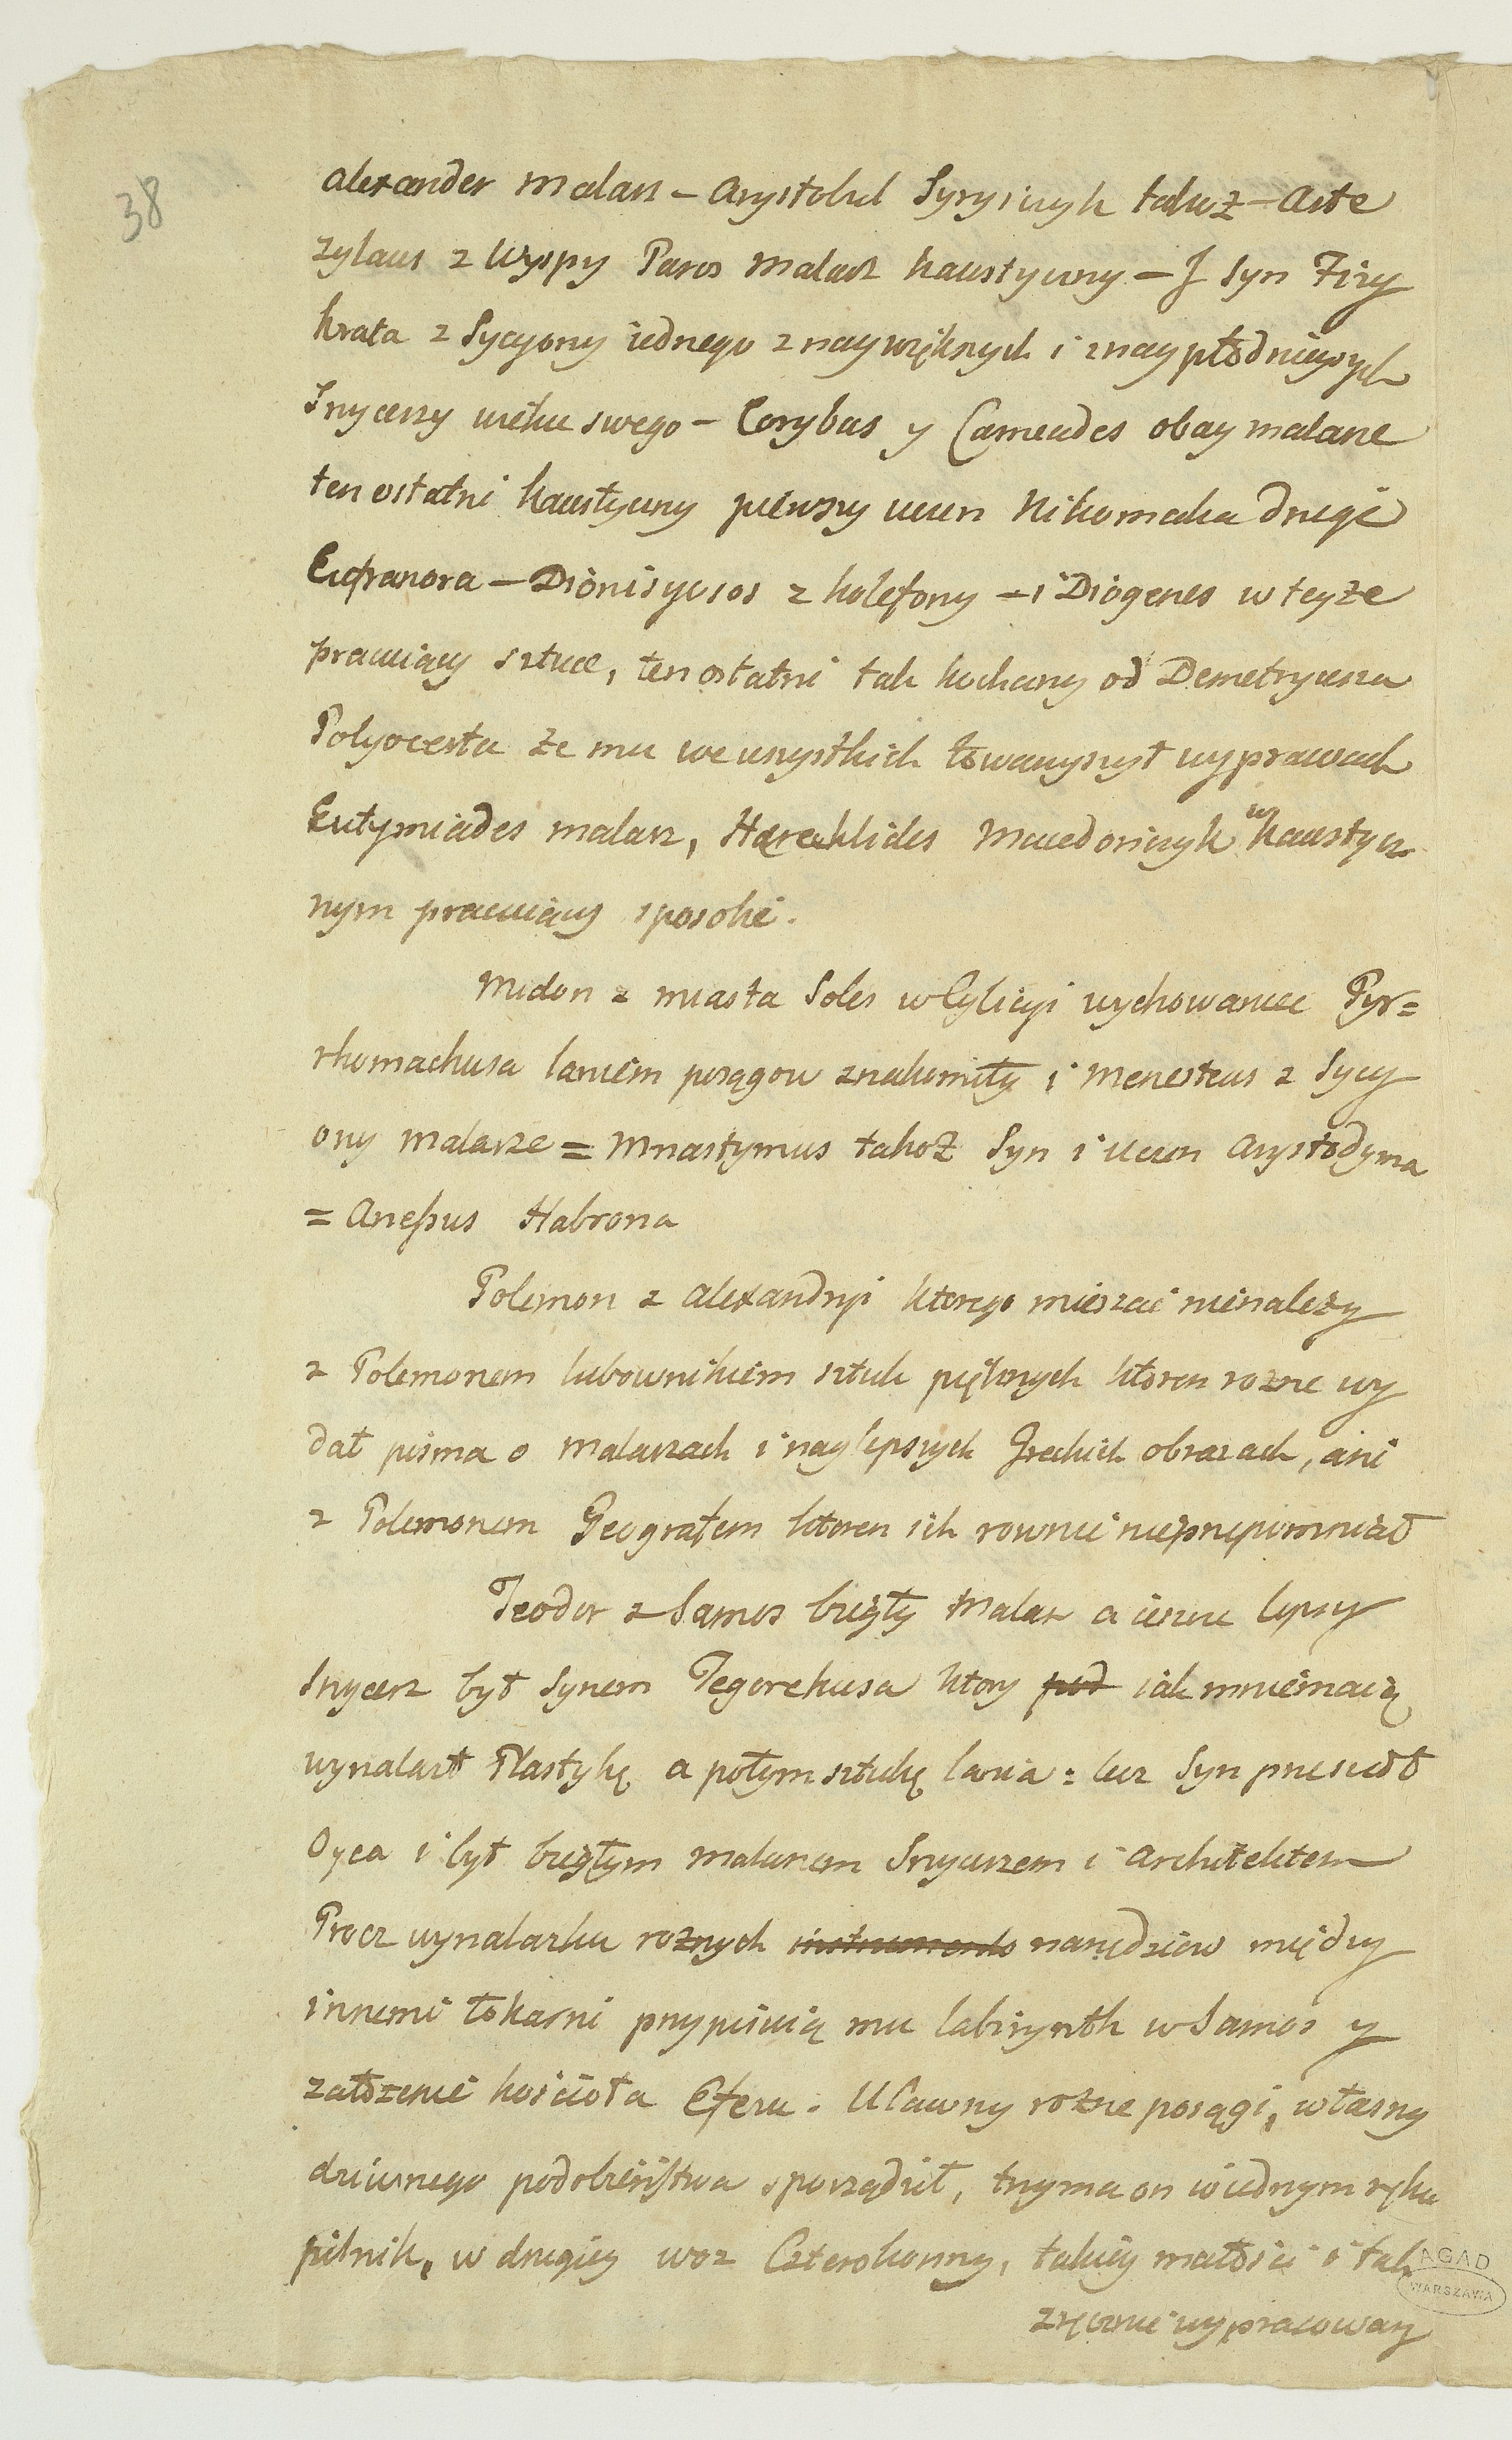 38
Alexander Malarz – Arystobul Syryiczyk takoż – Arte
zylaus z Wyspy Paros Malarz kaustyczny – J Syn Tizy
krata z Sycyony iednego z naywiększych i z naypłodnieyszych
Snycerzy wieku swego – Corybas y Carneades obay malarze
ten ostatni kaustyczny pierwszy uczen Nikomaka drugi
Eufranora – Dionisyusos z kolefony – i Diogenes w teyże
pracuiący sztuce, ten ostatni tak kochany od Demetryusza
Polyocesta że mu we wszystkich towarzyszył wyprawach
Eutymiades malarz, Hereaklides Macedończyk w kaustycz
nym pracuiący sposobie.
Midon z miasta Soles w Cylicyi wychowaniec Pyr=
rhomachusa laniem posągow znakomity i Menesteus z Sycy
ony Malarze = Mnastymus takoż Syn i uczen Arystodyma
= Anessus Habrona
Polemon z Alexandryi ktorego mieszać nienależy
z Polemonem lubownikiem sztuk pięknych ktoren rozne wy
dał pisma o Malarzach i naylepszych Greckich obrazach, ani
z Polemonem Geografem ktoren ich rownie nieprzepomniał
Teodor z Samos biegły Malarz a ieszcze lepszy
Snycerz był Synem Tegorekusa ktory pod iak mniemaią
wynalazł Plastykę a potym sztukę lania: lecz Syn przeszedł
Oyca i był biegłym malarzem Snycerzem i Architektem
Procz wynalazku roznych instrumento narzędziow między
innemi tokarni przypisuią mu labirynth w Samos y
założenie kościoła Efezu. Ulawny rozne posągi, własny
dziwnego podobieństwa sporządził, trzyma on w iednym ręku
pilnik, w drugiey woz Czterokonny, takiey małości i tak
zręcznie wypracowany
AGAD
WARSZAWA